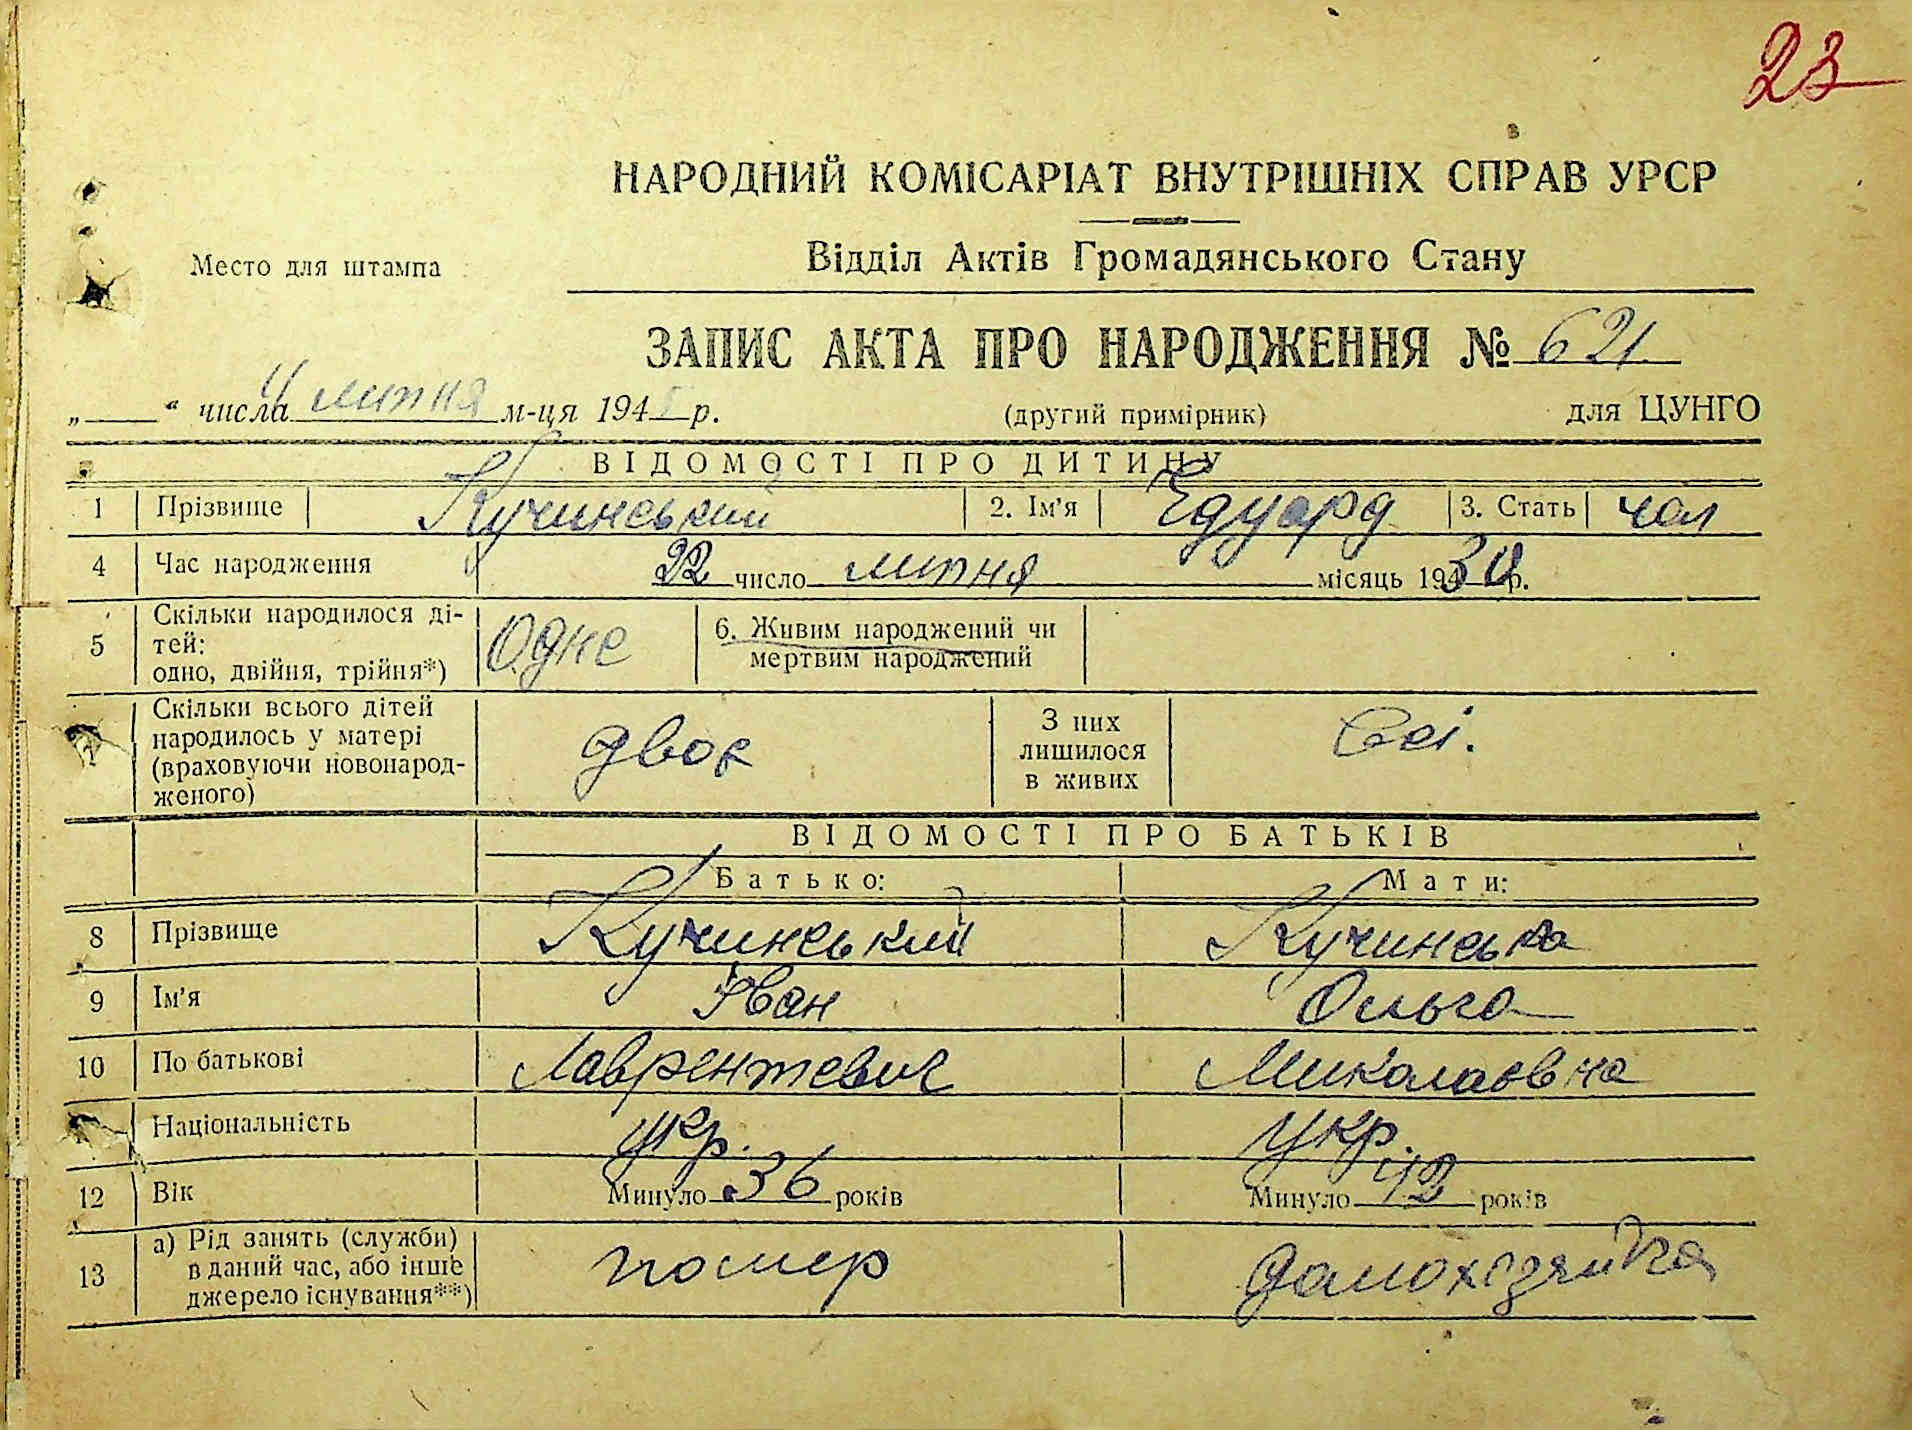 23
НАРОДНИЙ КОМІСАРІАТ ВНУТРІШНІХ СПРАВ УРСР
Відділ Актів Громадянського Стану
Место для штампа
ЗАПИС АКТА ПРО НАРОДЖЕННЯ № 621
„ “ числа 4 липня м-ця 194 р. (другий примірник) для ЦУНГО
ВІДОМОСТІ ПРО ДИТИНУ
1 Прізвище Кучинський 2. Ім'я Едуард 3. Стать чол
4 Час народження 22 число липня місяць 19 р.
5 Скільки народилося ді-
тей:
одно, двійня, трійня*) Одне 6. Живим народжений чи
мертвим народжений
Скільки всього дітей
народилось у матері
(враховуючи новонарод-
женого) двоє З них
лишилося
в живих Всі.
ВІДОМОСТІ ПРО БАТЬКІВ
Батько: Мати:
8 Прізвище Кучинський Кучинська
9 Ім'я Іван Ольга
10 По батькові Лаврентевич Миколаовна
Національність укр. Укр.
12 Вік Минуло 36 років Минуло років
13 а) Рід занять (служби)
в даний час, або інше
джерело існування**) помер домохізяйка